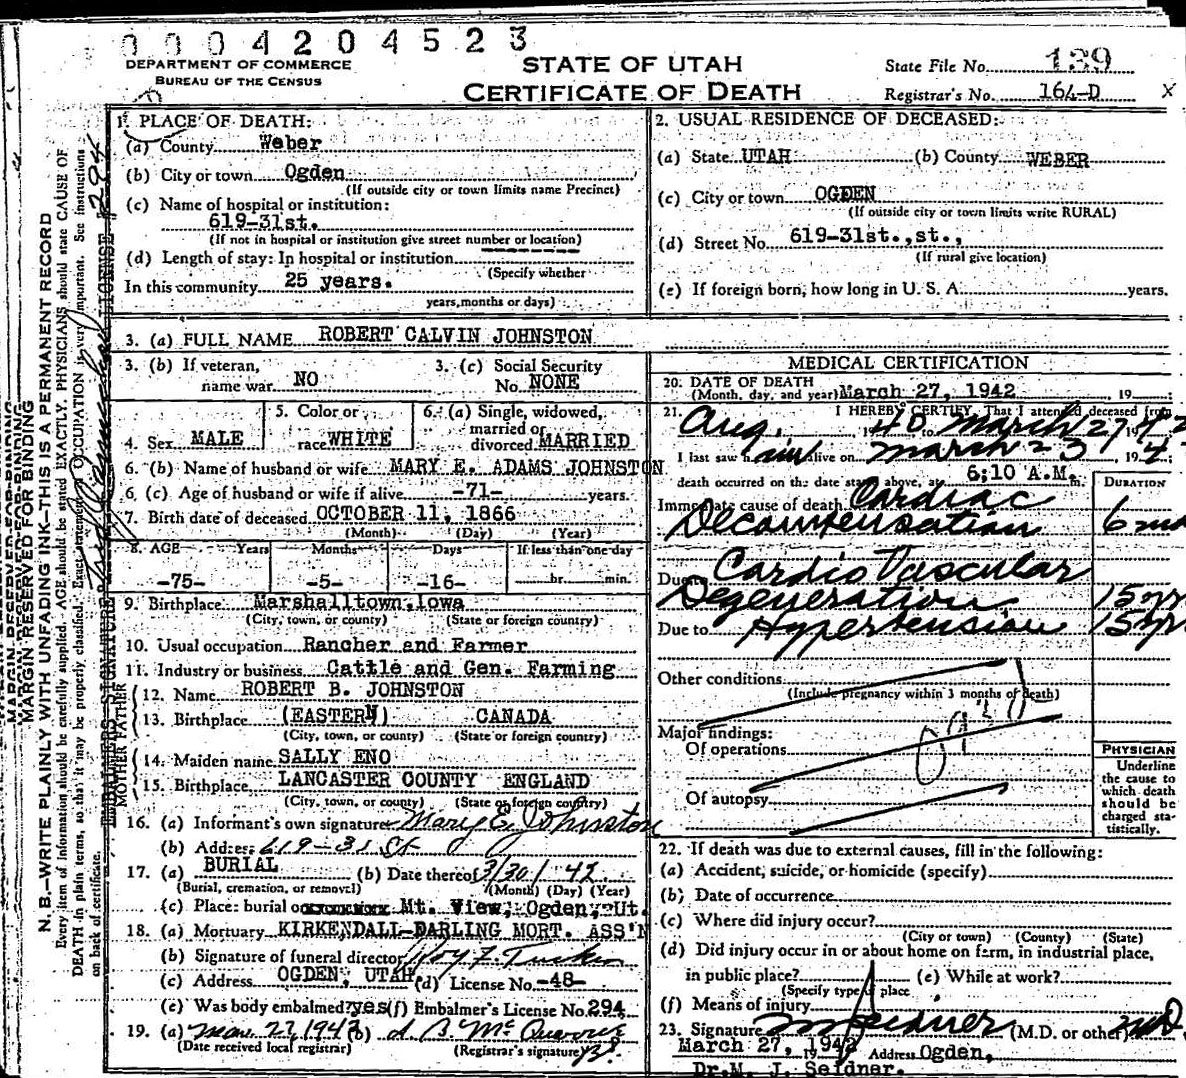 0004204523
DEPARTMENT OF COMMERCE
BUREAU OF THE CENSUS
STATE OF UTAH
CERTIFICATE OF DEATH
State File No. 139
Registrar's No. 164-D X
1. PLACE OF DEATH:
(a) County Weber
(b) City or town Ogden
(If outside city or town limits name Precinct)
(c) Name of hospital or institution:
619-31st.
(If not in hospital or institution give street number or location)
(d) Length of stay: In hospital or institution
(Specify whether
In this community 25 years.
years, months or days)
2. USUAL RESIDENCE OF DECEASED:
(a) State UTAH (b) County WEBER
(c) City or town OGDEN
(If outside city or town limits write RURAL)
(d) Street No. 619-31st.,st.,
(If rural give location)
(e) If foreign born, how long in U. S. A. years.
3. (a) FULL NAME ROBERT CALVIN JOHNSTON
3. (b) If veteran,
name war. NO
3. (c) Social Security
No. NONE
4. Sex MALE
5. Color or
race WHITE
6. (a) Single, widowed,
married or
divorced MARRIED
6. (b) Name of husband or wife MARY E. ADAMS JOHNSTON
6. (c) Age of husband or wife if alive -71- years.
7. Birth date of deceased OCTOBER 11, 1866
(Month) (Day) (Year)
8. AGE Years Months Days If less than one day
-75- -5- -16- hr. min.
9. Birthplace Marshalltown, Iowa
(City, town, or county) (State or foreign country)
10. Usual occupation Rancher and Farmer
11. Industry or business Cattle and Gen. Farming
FATHER
12. Name ROBERT B. JOHNSTON
13. Birthplace (EASTERN) CANADA
(City, town, or county) (State or foreign country)
MOTHER
14. Maiden name SALLY ENO
15. Birthplace LANCASTER COUNTY ENGLAND
(City, town, or county) (State or foreign country)
16. (a) Informant's own signature Mary E. Johnston
(b) Address 619-31 St
17. (a) BURIAL (b) Date thereof 3/30/42
(Burial, cremation, or removal) (Month) (Day) (Year)
(c) Place: burial or Mt. View, Ogden, Ut.
18. (a) Mortuary KIRKENDALL-DARLING MORT. ASS'N
(b) Signature of funeral director Roy F. Tucker
(c) Address OGDEN, UTAH. (d) License No. -48-
(e) Was body embalmed? yes (f) Embalmer's License No. 294
19. (a) Mar. 27, 1942 (b)
(Date received local registrar) (Registrar's signature)
MEDICAL CERTIFICATION
20. DATE OF DEATH
(Month, day, and year) March 27, 1942 , 19
21. I HEREBY CERTIFY, That I attended deceased from
Aug. 1940 to March 27 1942
I last saw him alive on March 23, 194
death occurred on the date stated above, at 6:10 A.M. m.
DURATION
Immediate cause of death Cardiac
Decompensation 6 mo
Due to Cardio Vascular
Degeneration 15 yr
Due to Hypertension 15 yr
Other conditions
(Include pregnancy within 3 months of death)
Major findings:
Of operations
Of autopsy
PHYSICIAN
Underline
the cause to
which death
should be
charged sta-
tistically.
22. If death was due to external causes, fill in the following:
(a) Accident, suicide, or homicide (specify)
(b) Date of occurrence
(c) Where did injury occur?
(City or town) (County) (State)
(d) Did injury occur in or about home on farm, in industrial place,
in public place? (e) While at work?
(Specify type of place
(f) Means of injury
23. Signature M J Seidner (M.D. or other) M.D.
March 27, 1942 19 Address Ogden,
Dr. M. J. Seidner.
MARGIN RESERVED FOR BINDING
N. B.—WRITE PLAINLY WITH UNFADING INK—THIS IS A PERMANENT RECORD
Every item of information should be carefully supplied. AGE should be stated EXACTLY. PHYSICIANS should state CAUSE OF
DEATH in plain terms, so that it may be properly classified. Exact statement of OCCUPATION is very important. See instructions
on back of certificate.
EMBALMER'S SIGNATURE LICENSE # 294